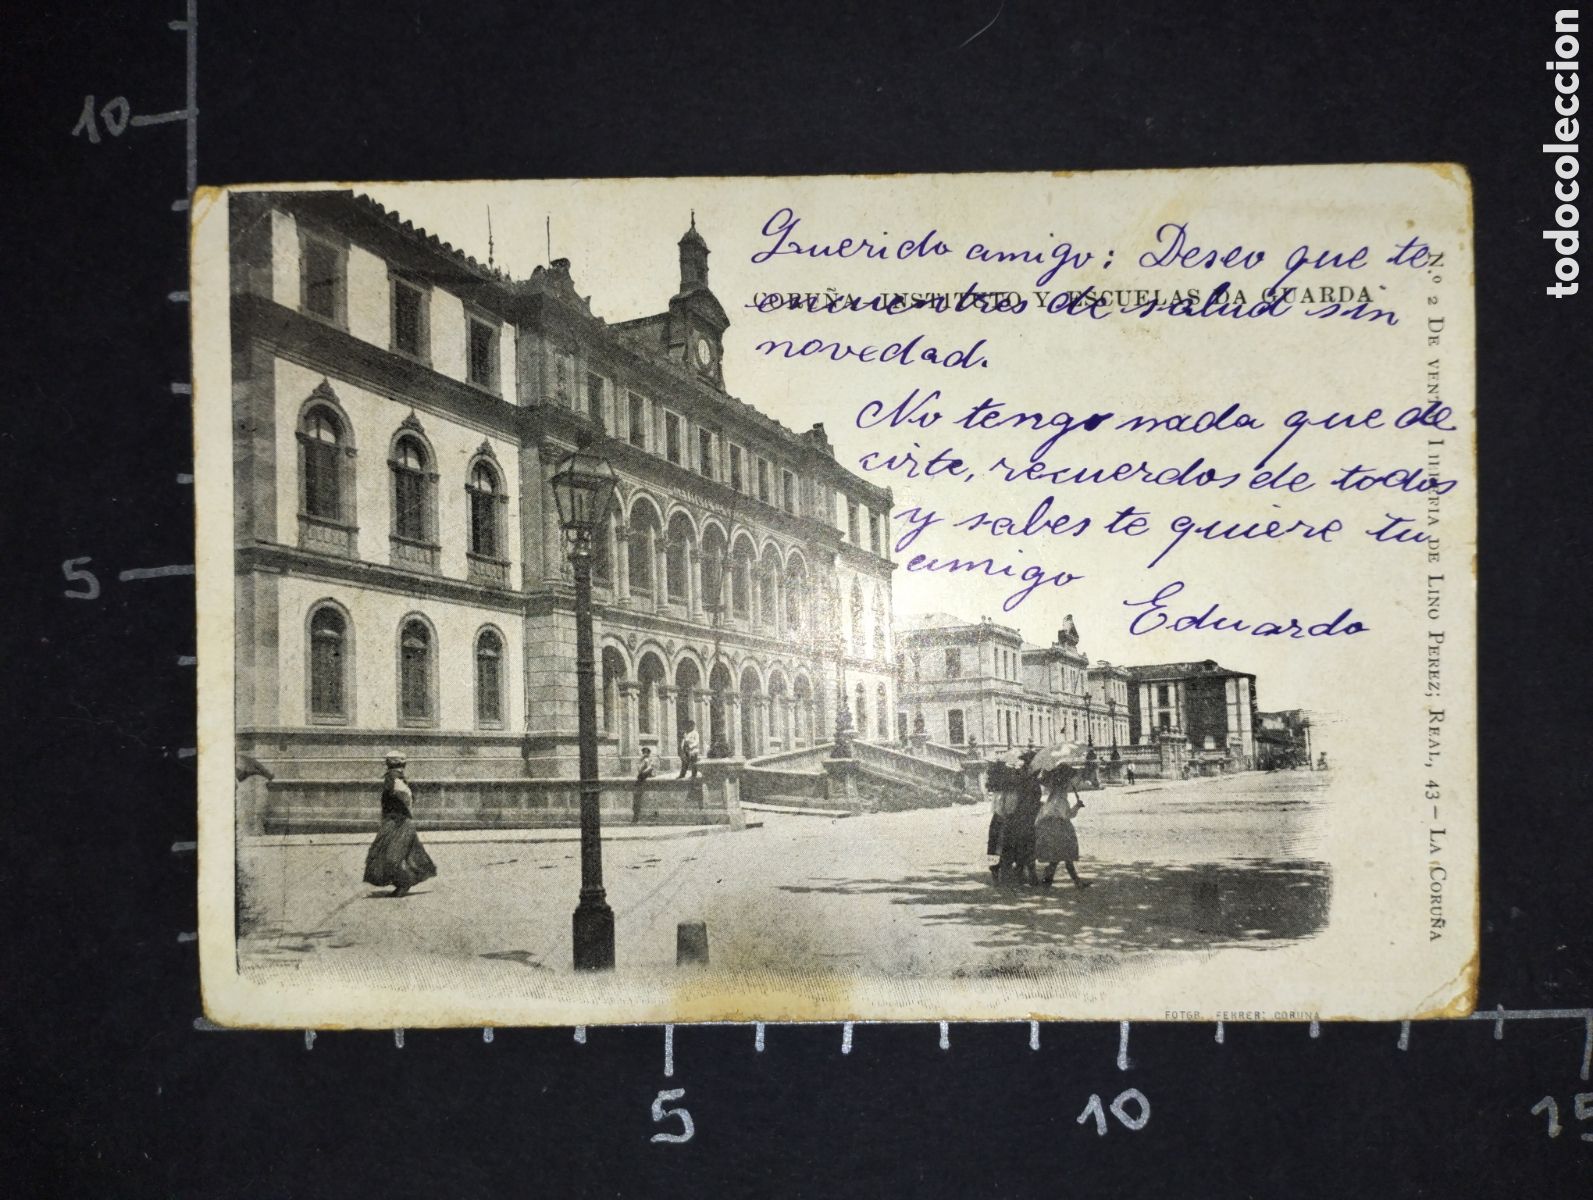 Querido amigo: Deseo que te
encuentres de salud sin
novedad.
No tengo nada que de
cirte, recuerdos de todos
y sabes te quiere tu
amigo
Eduardo
CORUÑA-INSTITUTO Y ESCUELAS DA GUARDA
N.º 2 DE VENTA LIBRERIA DE LINO PEREZ; REAL, 43 – LA CORUÑA
FOTGR. FERRER: CORUÑA
10
5
5
10
15
todocoleccion